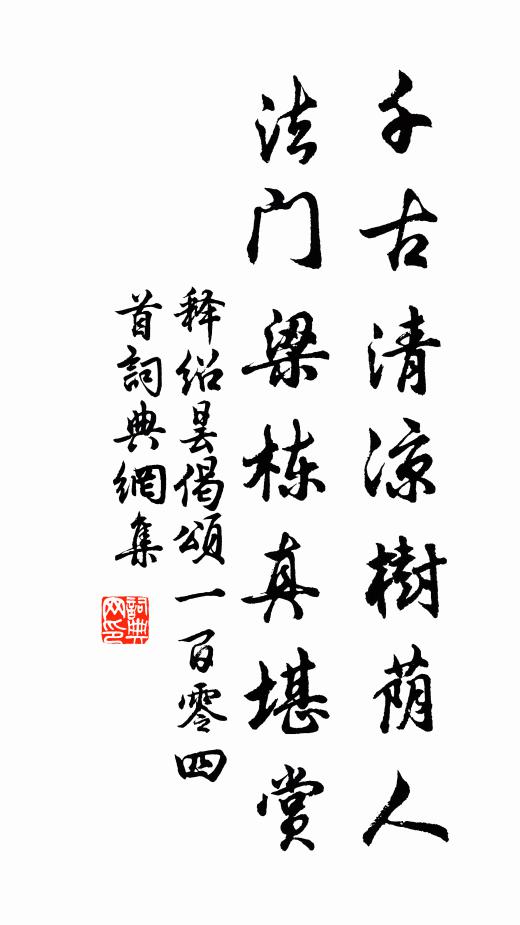 千古清凉樹荫人
法门梁栋真堪赏
释绍昙偈頌一百零四
首詞典網集
詞典
网印